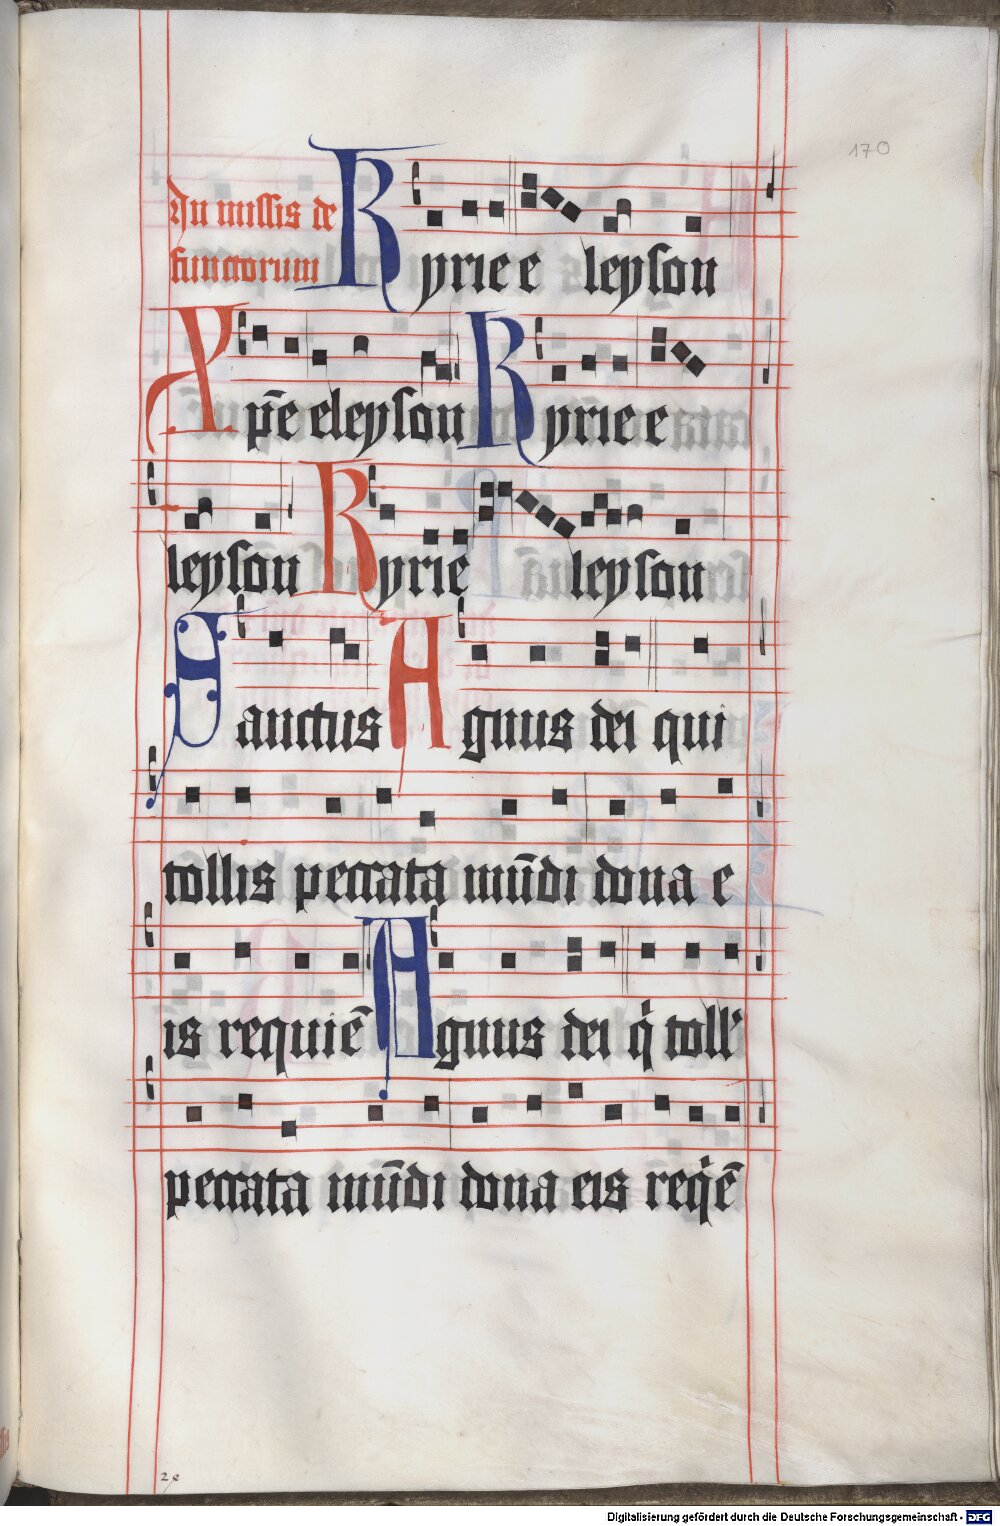 170
In missis de
functorum
Kyrie e leyson
Xp̄e eleyson Kyrie e
leyson Kyrie leyson
Sanctus Agnus dei qui
tollis peccata mūdi dona e
is requiē Agnus dei q̇ toll'
peccata mūdi dona eis req̇ē
Digitalisierung gefördert durch die Deutsche Forschungsgemeinschaft - DFG